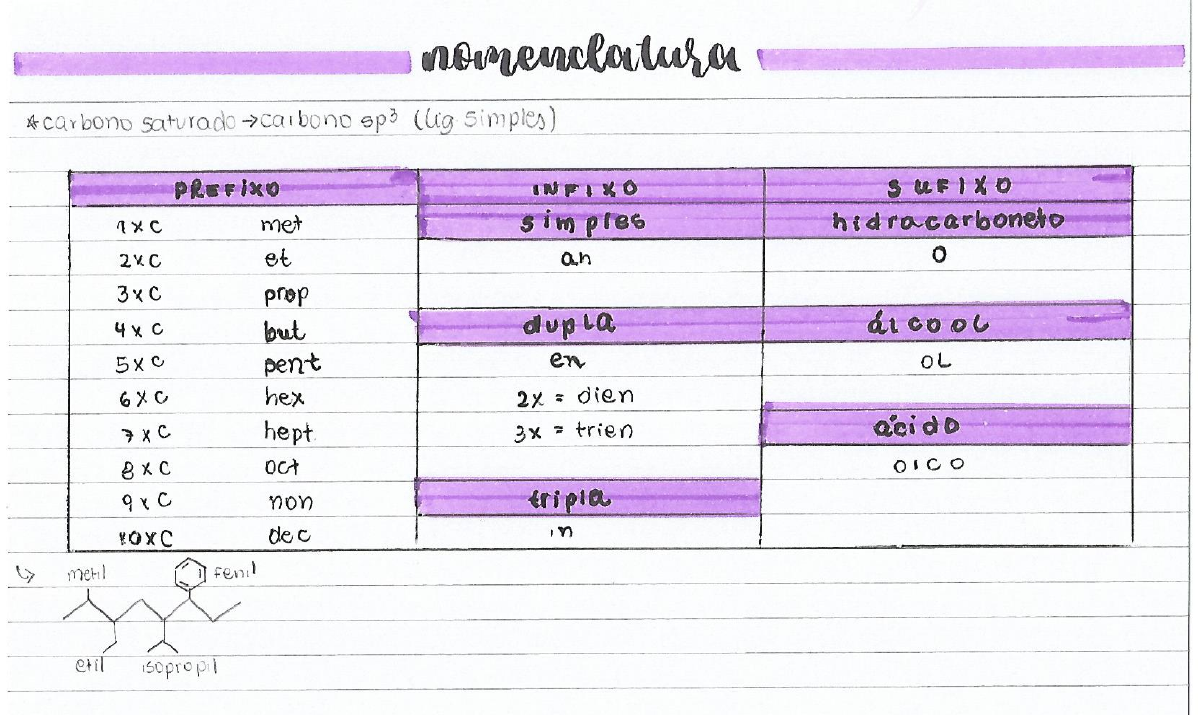 nomenclatura
*carbono saturado → carbono sp³ (lig simples)
PREFIXO INFIXO SUFIXO
1xC met simples hidrocarboneto
2xC et an O
3xC prop
4xC but dupla álcool
5xC pent en OL
6xC hex 2x = dien
7xC hept 3x = trien ácido
8xC oct OICO
9xC non tripla
10xC dec in
↳ metil fenil
etil isopropil